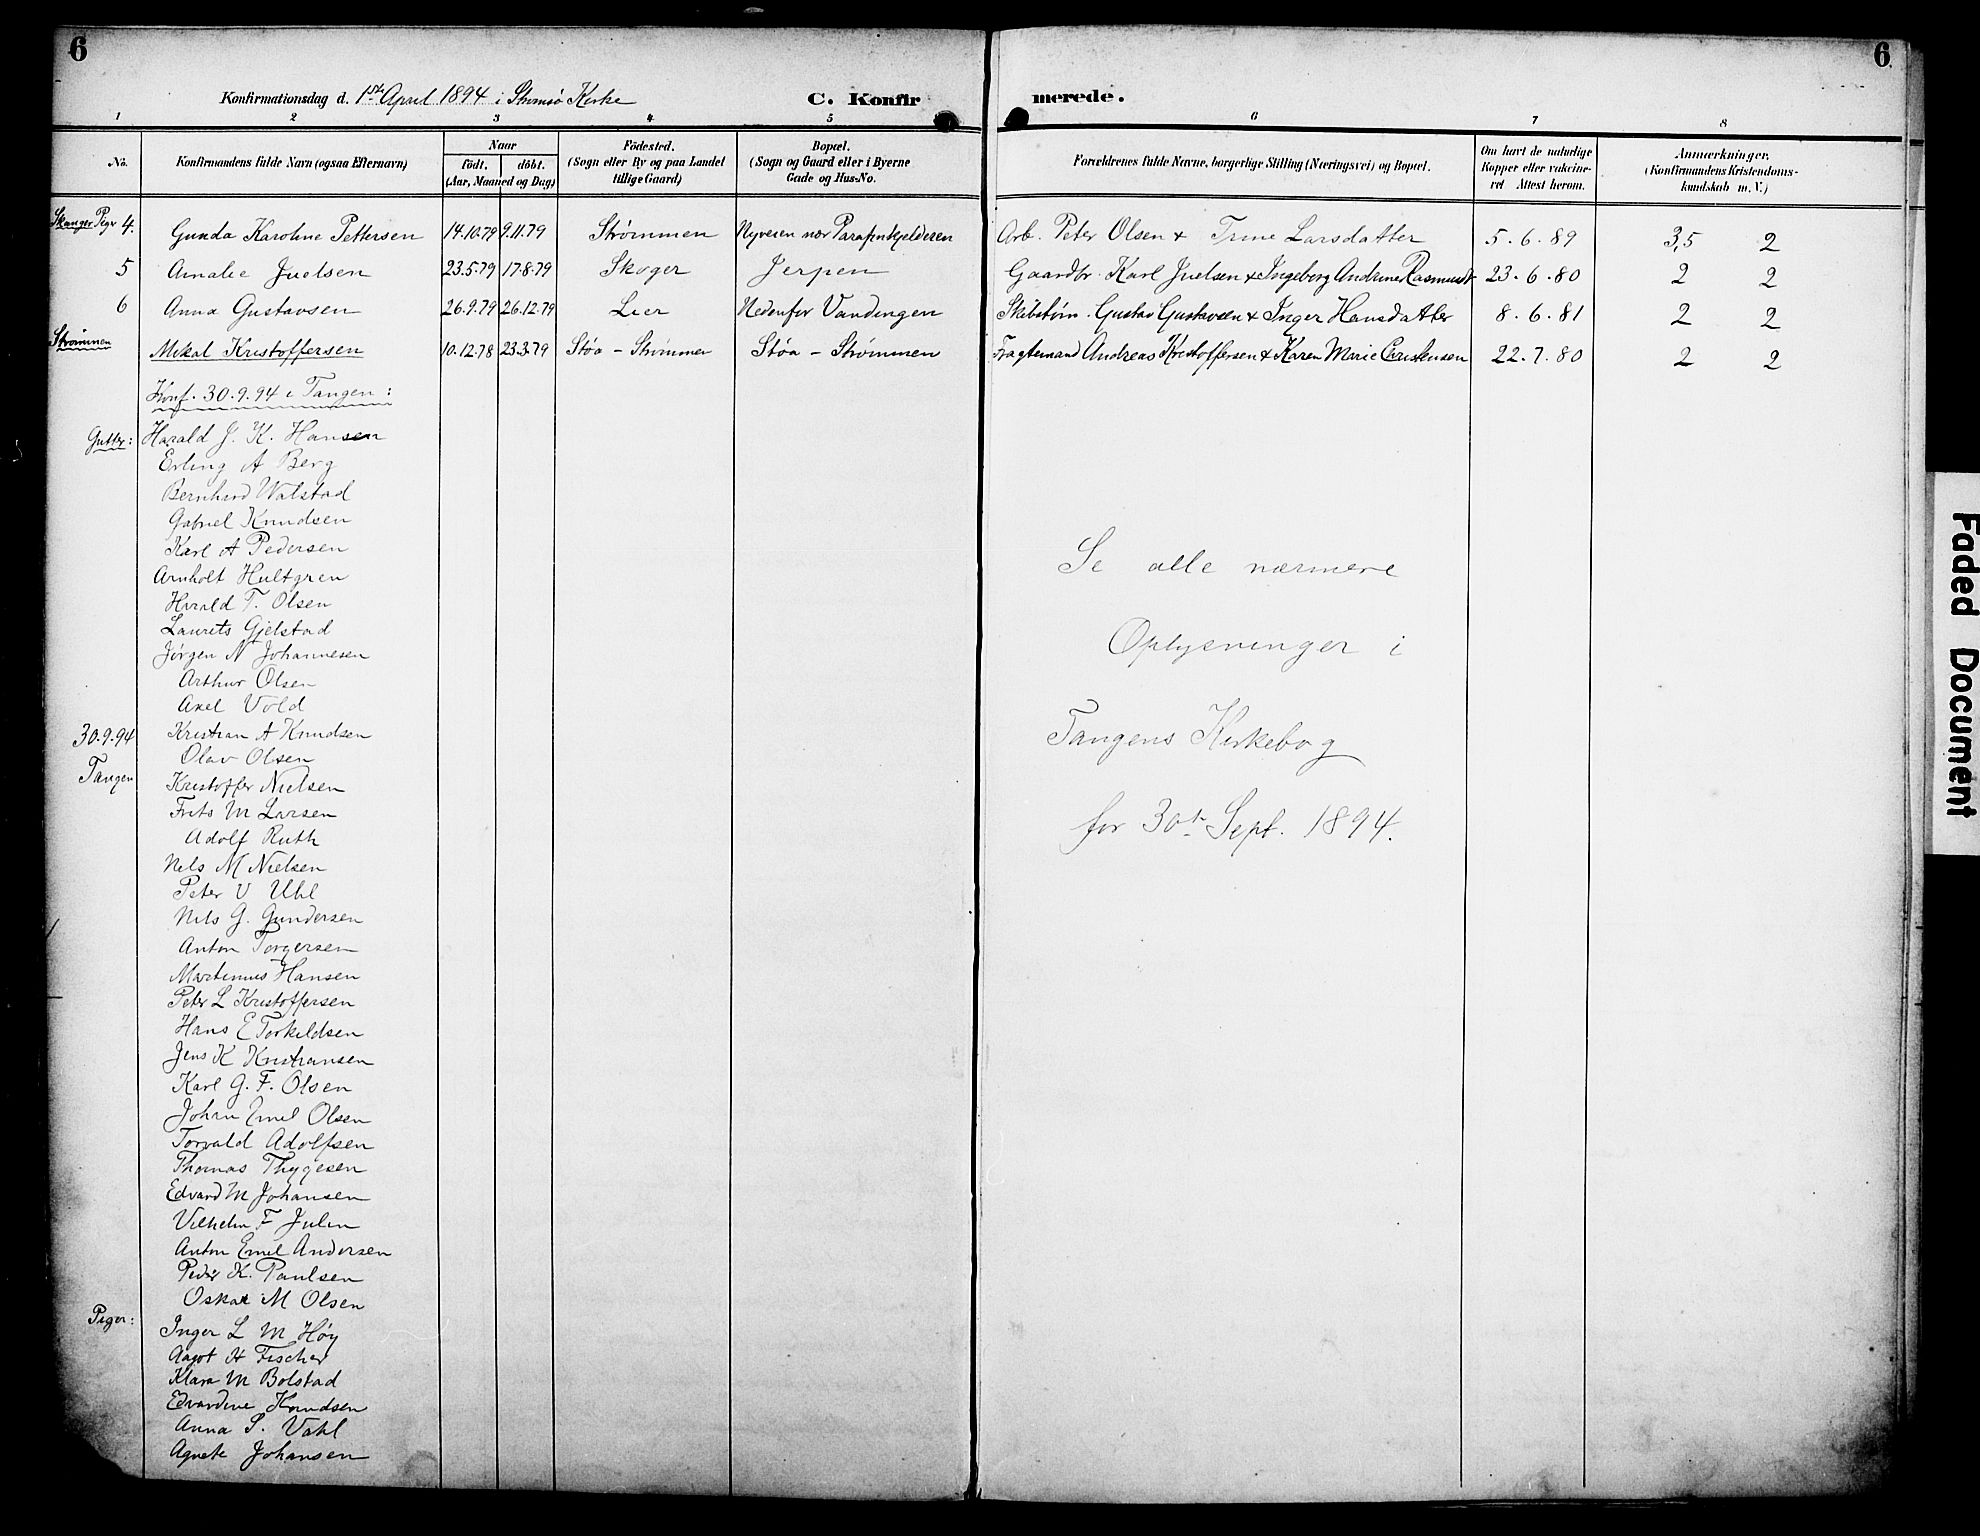 6
6
Konfirmationsdag d. 1ste April 1894 i Strømsø Kirke
C. Konfirmerede.
1 2 3 4 5 6 7 8
No. Konfirmandens fulde Navn (ogsaa Efternavn) Naar født. døbt. (Aar, Maaned og Dag) Fødested. (Sogn eller By og paa Landet tillige Gaard) Bopæl. (Sogn og Gaard eller i Byerne Gade og Hus-No. Forældrenes fulde Navne, borgerlige Stilling (Næringsvei) og Bopæl. Om havt de naturlige Kopper eller vaccineret Attest herom. Anmærkninger. (Konfirmandens Kristendomskundskab m. V.)
Skauger Piger 4. Gunda Karoline Pettersen 14.10.79 9.11.79 Strømmen Nyveien nær Parafinkjelderen Arb. Peter Olsen & Trine Larsdatter 5.6.89 3,5 2
5 Amalie Juelsen 23.5.79 17.8.79 Skoger Jerpen Gaardbr. Karl Juelsen & Ingeborg Andrine Rasmusdt 23.6.80 2 2
6 Anna Gustavsen 26.9.79 26.12.79 Lier Nedenfor Vandingen Skibstøm. Gustav Gustavsen & Inger Hansdatter 8.6.81 2 2
Strømmen Mikal Kristoffersen 10.12.78 23.3.79 Støa - Strømmen Støa - Strømmen Fragtemand Andreas Kristoffersen & Karen Marie Christensen 22.7.80 2 2
Konf. 30.9.94 i Tangen:
Gutter: Harald J. K. Hansen
Erling A Berg
Bernhard Walstad
Gabriel Knudsen
Karl A Pedersen
Arnholt Hultgren
Harald T. Olsen
Laurits Gjelstad
Jørgen N Johannesen
Arthur Olsen
Axel Vold
30.9.94 Kristian A Knudsen
Olav Olsen
Tangen Kristoffer Nielsen
Frits M Larsen
Adolf Ruth
Nils M Nielsen
Peter V Uhl
Nils G. Gundersen
Anton Torgersen
Martinius Hansen
Peter L Kristoffersen
Hans E Torkildsen
Jens K Kristiansen
Karl G. F. Olsen
Johan Emil Olsen
Torvald Adolfsen
Thomas Thygesen
Edvard M Johansen
Vilhelm F Julin
Anton Emil Andersen
Peder K. Paulsen
Oskar M Olsen
Piger: Inger L M Høy
Aagot H Fischer
Klara M Bolstad
Edvardine Knudsen
Anna S. Vahl
Agnete Johansen
Se alle nærmere
Oplysninger i
Tangens Kirkebog
for 30te Sept. 1894.
Faded Document